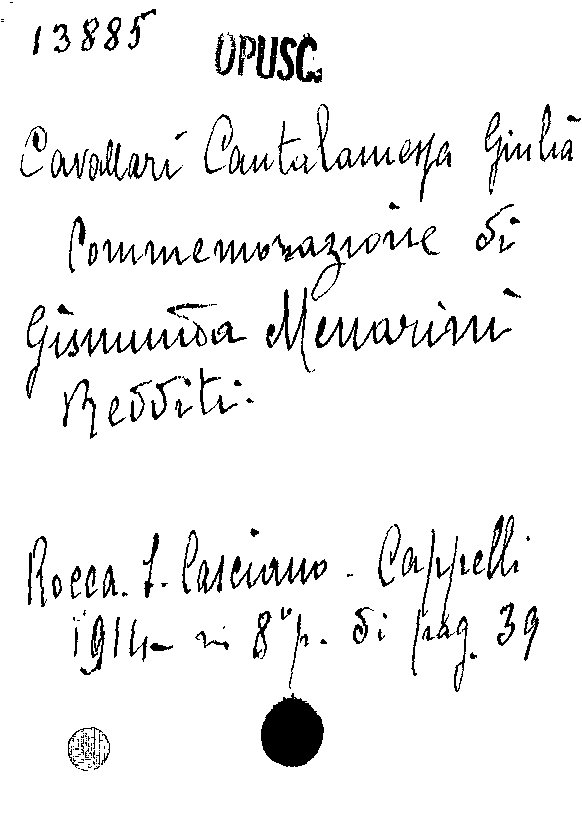 13885 OPUSC.
Cavallari Cantalamessa Giulia
Commemorazione di
Gismunda Menarini
Redditi.
Rocca. S. Casciano - Cappelli
1914 - in 8° p. di pag. 39